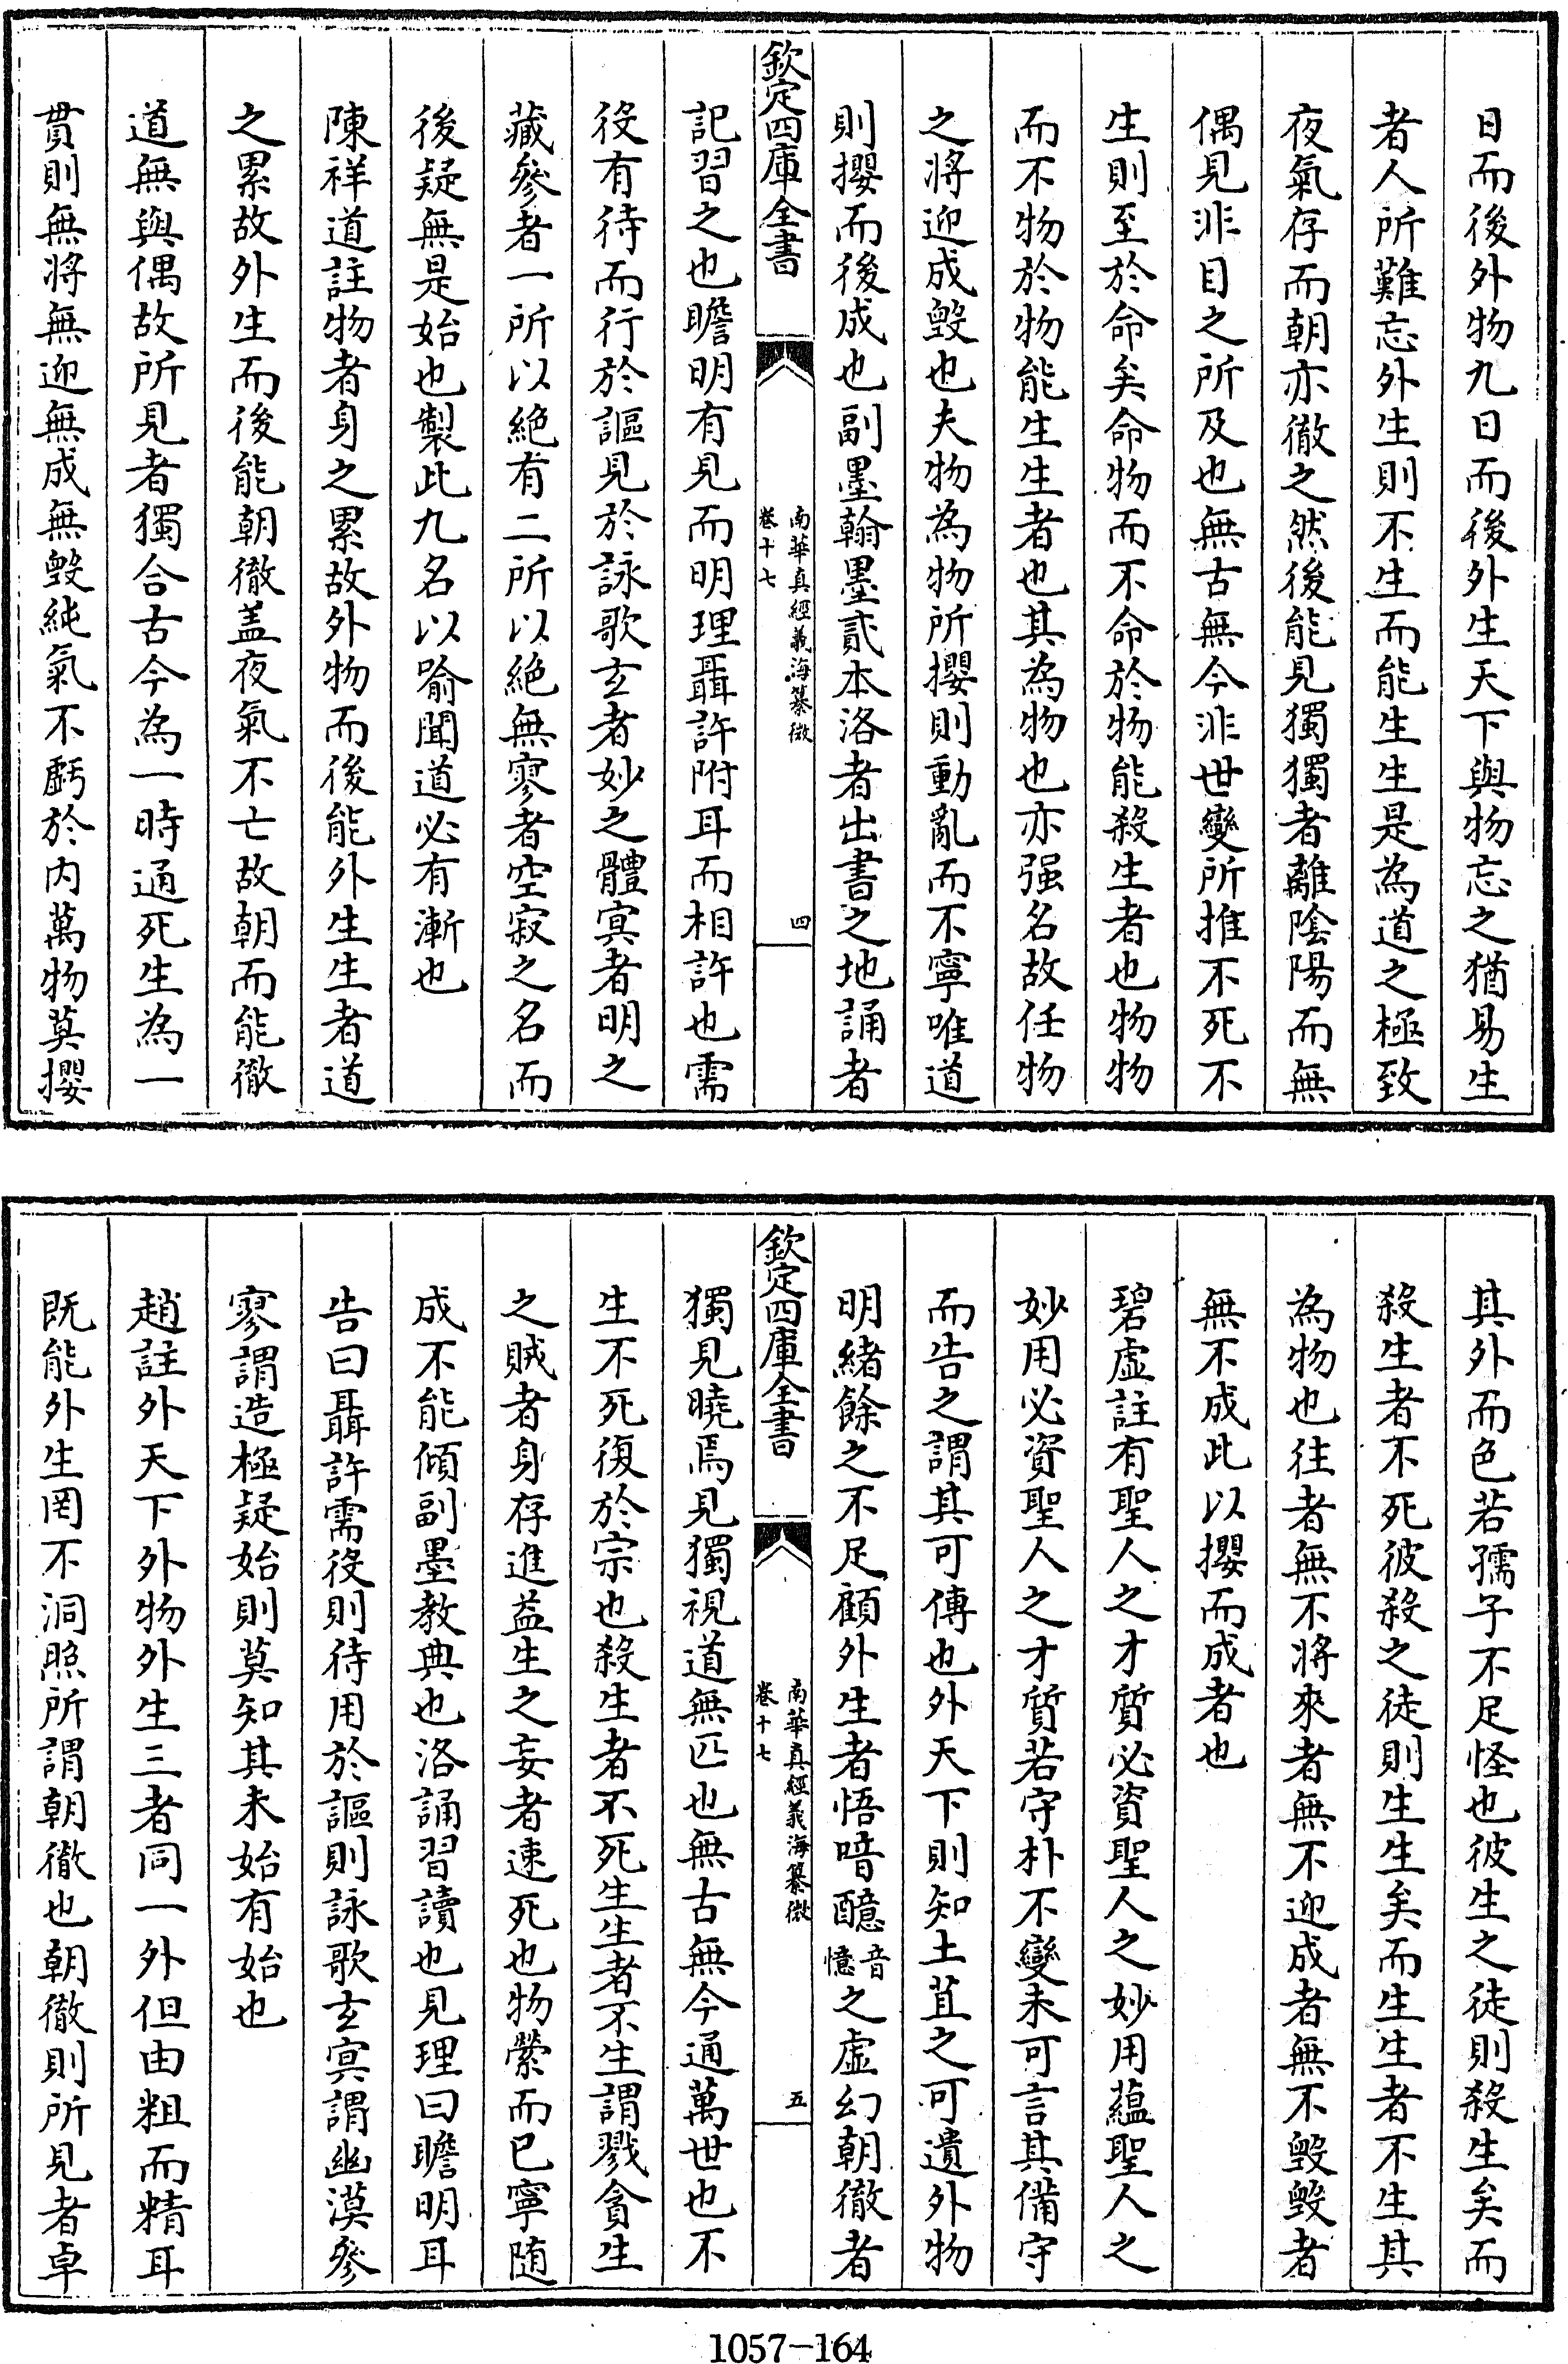 日而後外物九日而後外生天下與物忘之猶易生
者人所難忘外生則不生而能生生是為道之極致
夜氣存而朝亦徹之然後能見獨獨者離陰陽而無
偶見非目之所及也無古無今非世變所推不死不
生則至於命矣命物而不命於物能殺生者也物物
而不物於物能生生者也其為物也亦强名故任物
之將迎成毀也夫物為物所攖則動亂而不寧唯道
則攖而後成也副墨翰墨貳本洛者出書之地誦者
欽定四庫全書
南華真經義海纂微
卷十七
四
記習之也瞻明有見而明理聶許附耳而相許也需
役有待而行於謳見於詠歌玄者妙之體冥者明之
藏參者一所以絶有二所以絶無寥者空寂之名而
後疑無是始也製此九名以喻聞道必有漸也
陳祥道註物者身之累故外物而後能外生生者道
之累故外生而後能朝徹盖夜氣不亡故朝而能徹
道無與偶故所見者獨合古今為一時通死生為一
貫則無將無迎無成無毀純氣不虧於内萬物莫攖
其外而色若孺子不足怪也彼生之徒則殺生矣而
殺生者不死彼殺之徒則生生矣而生生者不生其
為物也往者無不將來者無不迎成者無不毀毀者
無不成此以攖而成者也
碧虛註有聖人之才質必資聖人之妙用蘊聖人之
妙用必資聖人之才質若守朴不變未可言其備守
而告之謂其可傳也外天下則知土苴之可遺外物
明緒餘之不足顧外生者悟喑醷音憶之虛幻朝徹者
欽定四庫全書
南華真經義海纂微
卷十七
五
獨見曉焉見獨視道無匹也無古無今通萬世也不
生不死復於宗也殺生者不死生生者不生謂戮貪生
之賊者身存進益生之妄者速死也物縈而已寧隨
成不能傾副墨教典也洛誦習讀也見理曰瞻明耳
告曰聶許需役則待用於謳則詠歌玄冥謂幽漠參
寥謂造極疑始則莫知其未始有始也
趙註外天下外物外生三者同一外但由粗而精耳
既能外生罔不洞照所謂朝徹也朝徹則所見者卓
1057-164